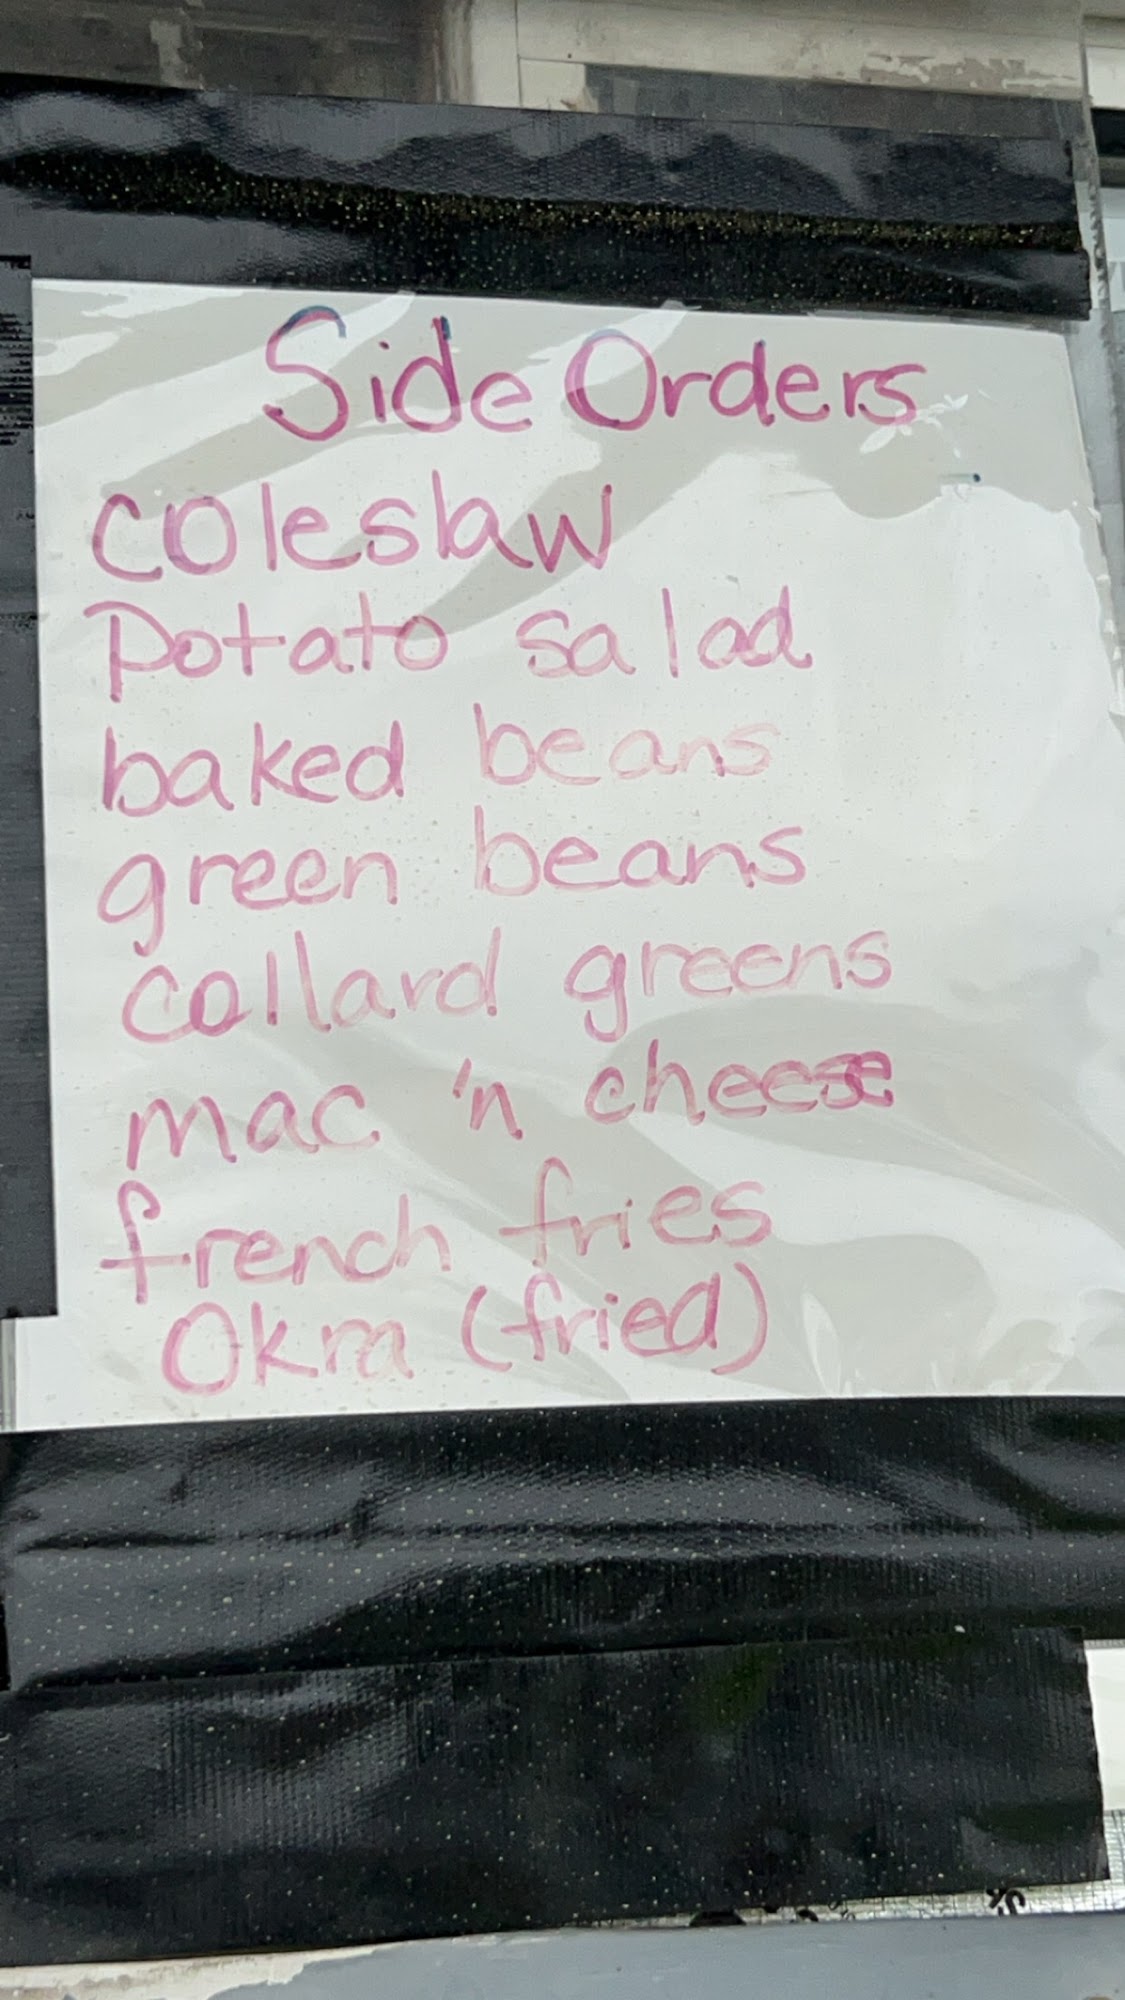 Side Orders
coleslaw
Potato salad
baked beans
green beans
collard greens
mac 'n cheese
french fries
Okra (fried)